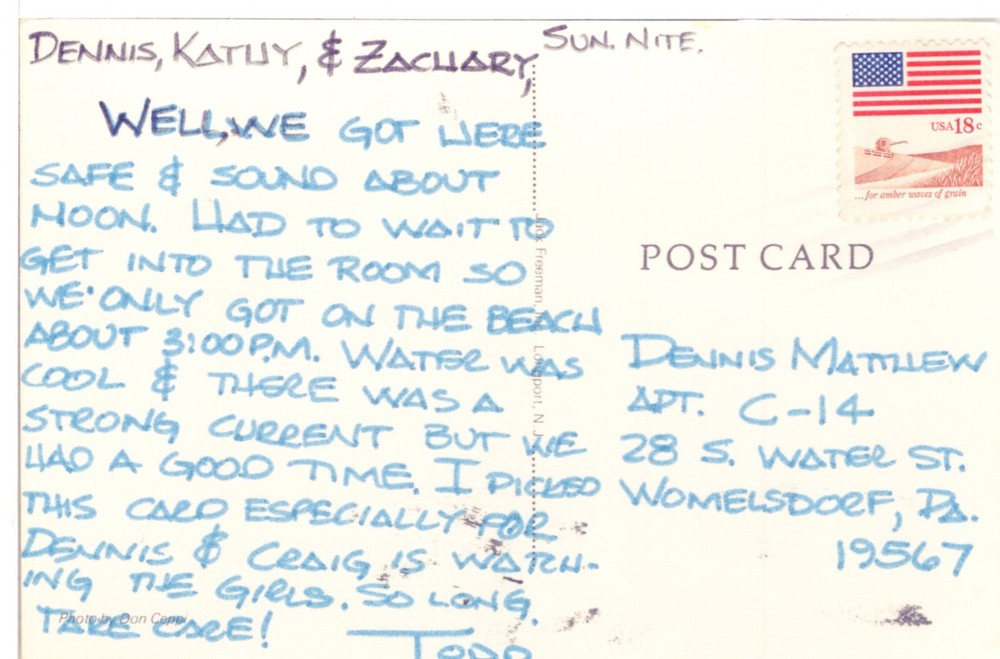 DENNIS, KATHY, & ZACHARY,
SUN. NITE.
WELL, WE GOT HERE
SAFE & SOUND ABOUT
NOON. HAD TO WAIT TO
GET INTO THE ROOM SO
WE ONLY GOT ON THE BEACH
ABOUT 3:00 P.M. WATER WAS
COOL & THERE WAS A
STRONG CURRENT BUT WE
HAD A GOOD TIME. I PICKED
THIS CARD ESPECIALLY FOR
DENNIS & CRAIG IS WATCH-
ING THE GIRLS. SO LONG.
TAKE CARE!
TODD
Photo by Don Ceppi
Jack Freeman, Inc. Longport, N.J.
USA 18c
...for amber waves of grain
POST CARD
DENNIS MATTHEW
APT. C-14
28 S. WATER ST.
WOMELSDORF, PA.
19567